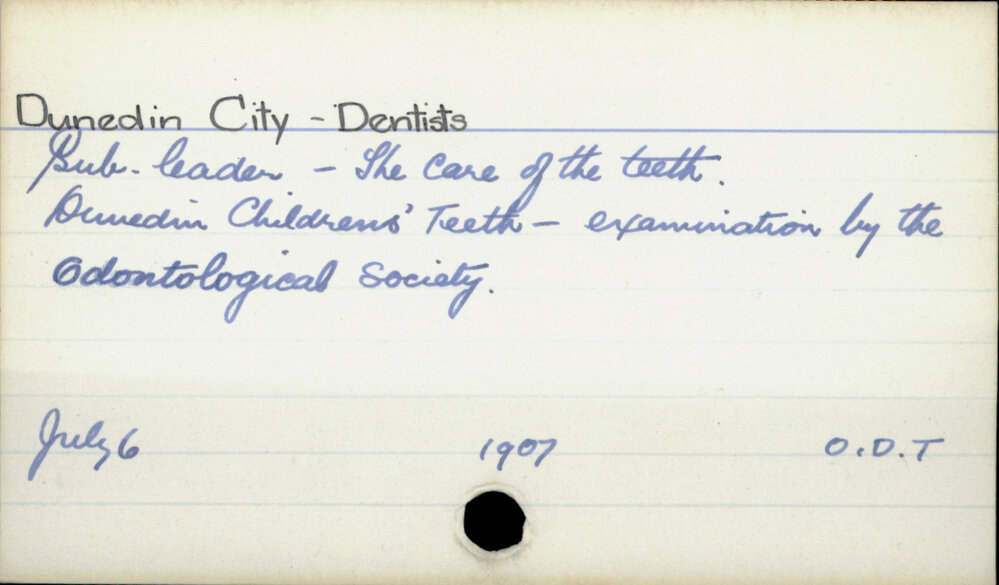 Dunedin City - Dentists
Sub-leader - The Care of the teeth.
Dunedin Childrens' Teeth - examination by the
Odontological Society.
July 6 1907 O.D.T